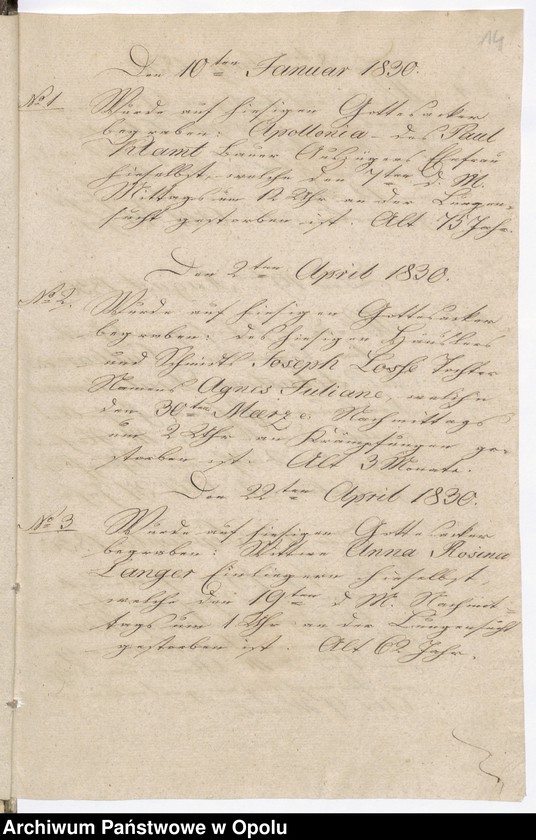 14
Den 10ten Januar 1830.
No 1
Wurde auf hiesigen Gottesacker
begraben: Apollonia des Paul
Klamt Bauer Auszügers Ehefrau
hieselbst, welche den 7ten d. M.
Mittags um 12 Uhr an der Lungen-
sucht gestorben ist. Alt 75 Jahr.
Den 2ten April 1830.
No 2.
Wurde auf hiesigen Gottesacker
begraben: des hiesigen Häuslers
und Schmidts Joseph Losse Tochter
Namens Agnes Juliane, welche
den 30ten Maerz c. Nachmittags
um 2 Uhr an Krämpfungen ge-
storben ist. Alt 3 Monate.
Den 22ten April 1830.
No 3
Wurde auf hiesigen Gottesacker
begraben: Wittwe Anna Rosina
Langer Einliegern hieselbst,
welche den 19ten d M. Nachmit-
tags um 1 Uhr an der Lungensucht
gestorben ist. Alt 62 Jahr.
Archiwum Państwowe w Opolu